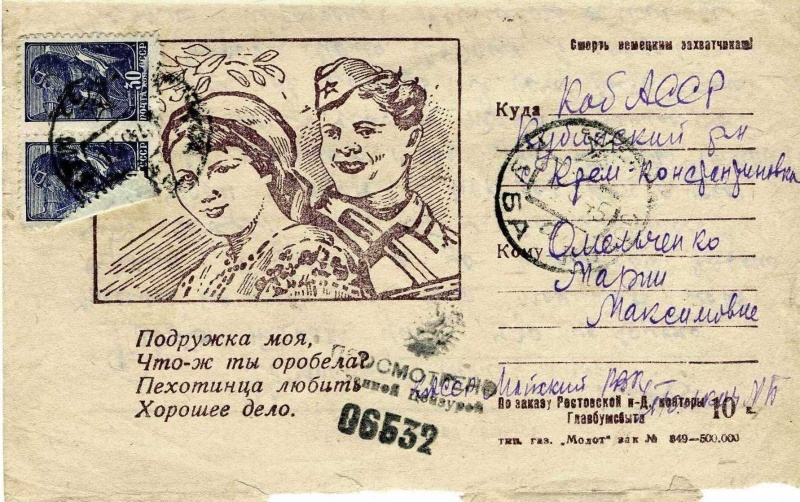 Смерть немецким захватчикам!
50
ПОЧТА СССР
Куда Каб АССР
Кубинский р-н
Крем-Константиновка
КУБА
Кому Омельченко
Марии
Максимовне
Подружка моя,
Что-ж ты оробела?
Пехотинца любить
Хорошее дело.
ПРОСМОТРЕНО
Военной Цензурой
06532
КАССР Майский
По заказу Ростовской н-Д. конторы
Главбумсбыта
10 к.
тип. газ. „Молот" зак № 849—500.000